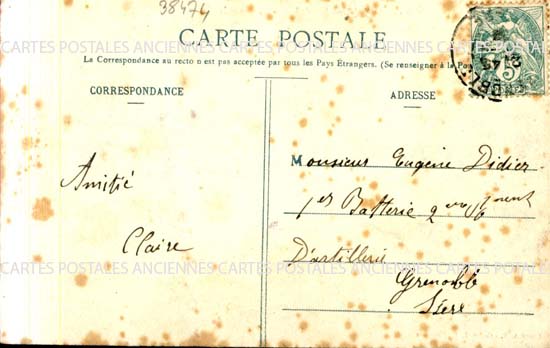 38474
CARTE POSTALE
La Correspondance au recto n'est pas acceptée par tous les Pays Étrangers. (Se renseigner à la Pos
CORRESPONDANCE
ADRESSE
Amitié
Claire
Monsieur Eugène Didier
1er Batterie 2eme
D'artillerie
Grenoble
Isere
CARTES POSTALES ANCIENNES CARTES POSTALES ANCIENNES CARTES POSTALES ANCIENNES
CARTES POSTALES ANCIENNES CARTES POSTALES ANCIENNES CARTES POSTALES ANCIENNES